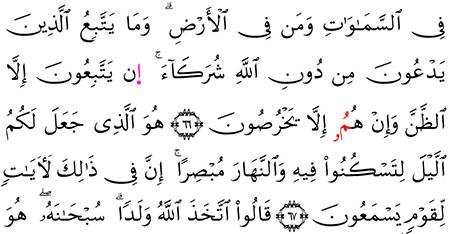 فِي ٱلسَّمَٰوَٰتِ وَمَن فِي ٱلۡأَرۡضِۗ وَمَا يَتَّبِعُ ٱلَّذِينَ
يَدۡعُونَ مِن دُونِ ٱللَّهِ شُرَكَآءَۚ إِن يَتَّبِعُونَ إِلَّا
ٱلظَّنَّ وَإِنۡ هُمُۥ إِلَّا يَخۡرُصُونَ ۝٦٦ هُوَ ٱلَّذِي جَعَلَ لَكُمُ
ٱلَّيۡلَ لِتَسۡكُنُواْ فِيهِ وَٱلنَّهَارَ مُبۡصِرًاۚ إِنَّ فِي ذَٰلِكَ لَأٓيَٰتٖ
لِّقَوۡمٖ يَسۡمَعُونَ ۝٦٧ قَالُواْ ٱتَّخَذَ ٱللَّهُ وَلَدٗاۗ سُبۡحَٰنَهُۥۖ هُوَ